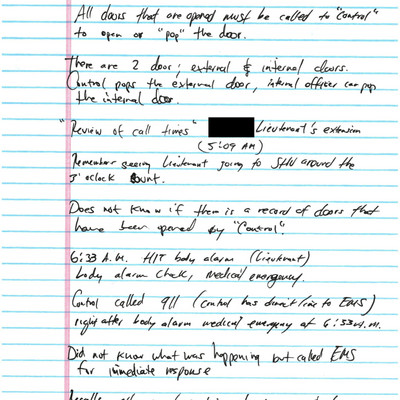 All doors that are opened must be called to "Control"
to open or "pop" the door.
There are 2 doors; external & internal doors.
Control pops the external door, internal officer can pop
the internal door.
"Review of call times" Lieutenant's extension
(5:09 AM)
Remember seeing Lieutenant going to SHU around the
3 o'clock count.
Does not know if there is a record of doors that
have been opened by "Control".
6:33 A.M. HIT body alarm (Lieutenant)
body alarm check, medical emergency.
Control called 911 (control has direct line to EMS)
right after body alarm medical emergency at 6:33 A.M.
Did not know what was happening but called EMS
for immediate response